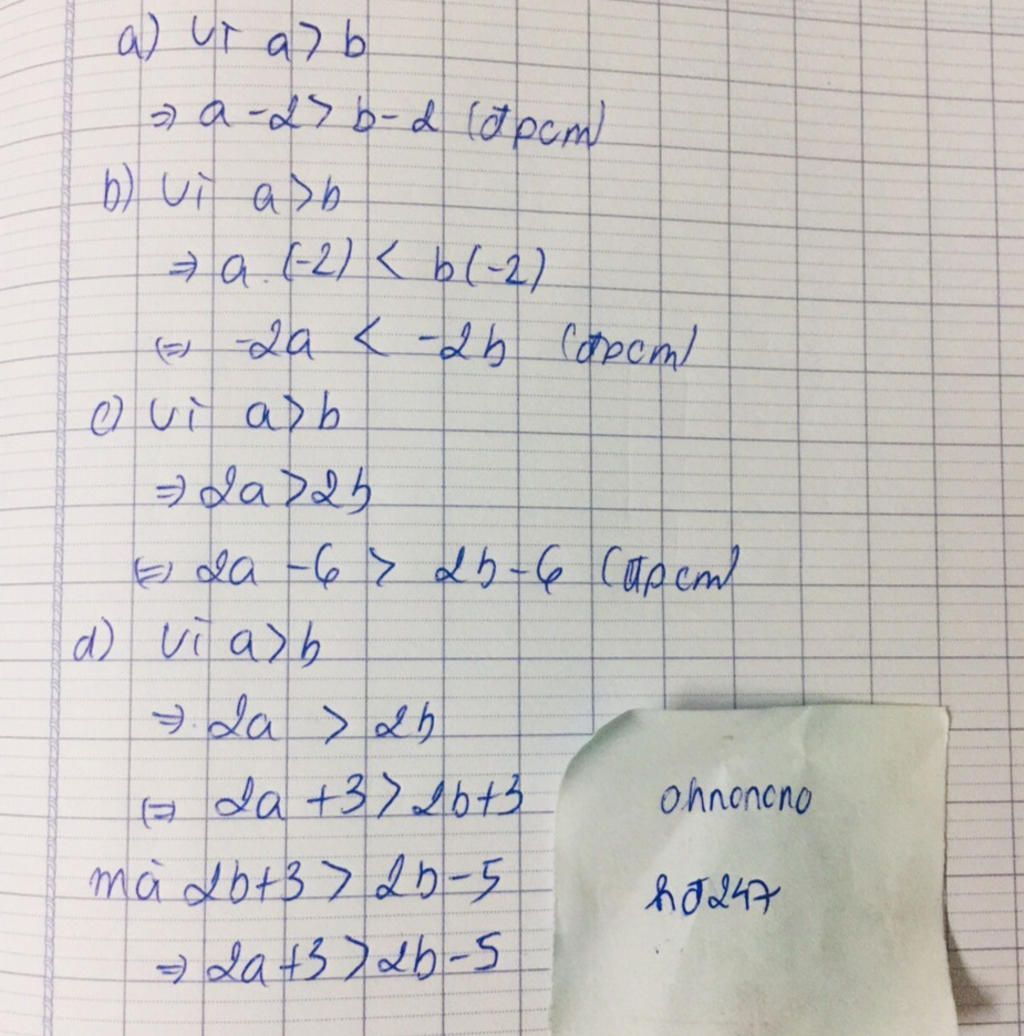 a) Vì a > b
⇒ a - 2 > b - 2 (đpcm)
b) Vì a > b
⇒ a . (-2) < b(-2)
⇔ -2a < -2b (đpcm)
c) Vì a > b
⇒ 2a > 2b
⇔ 2a - 6 > 2b - 6 (đpcm)
d) Vì a > b
⇒ 2a > 2b
⇔ 2a + 3 > 2b + 3
mà 2b + 3 > 2b - 5
⇒ 2a + 3 > 2b - 5
ohnonono
hđ247